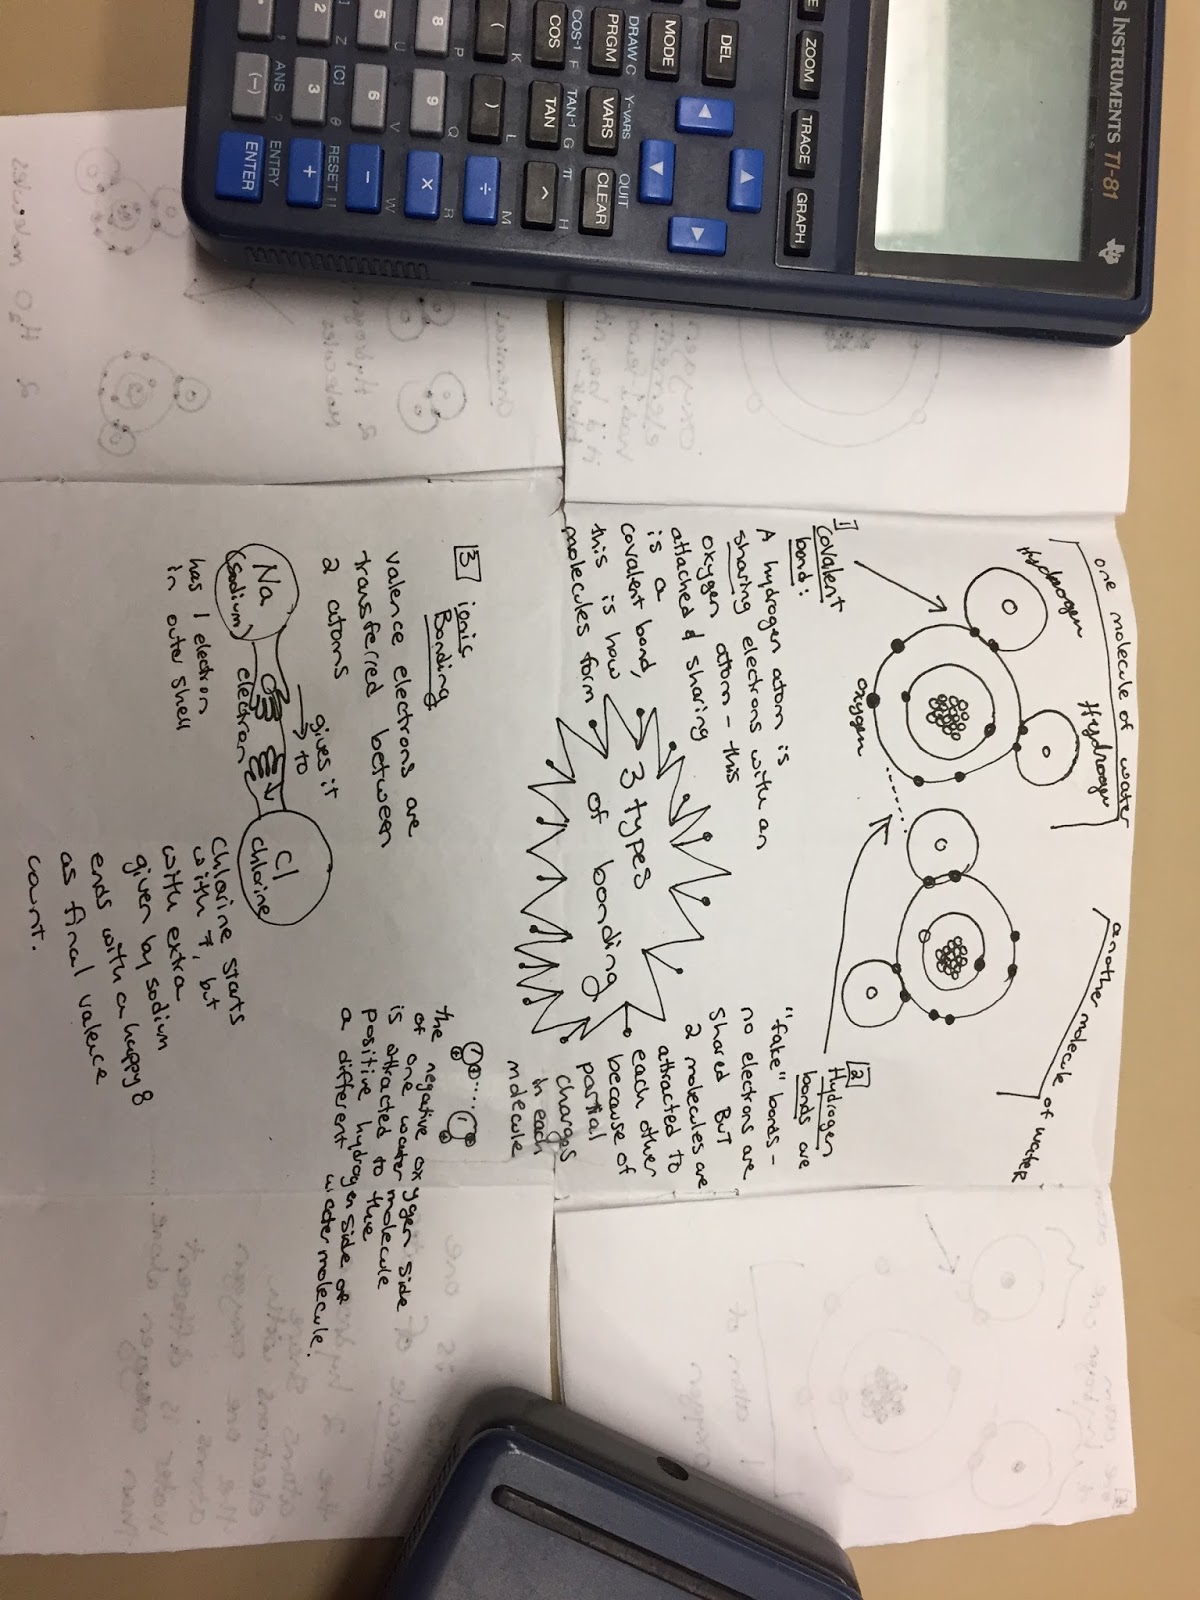 one molecule of water
another molecule of water
Hydrogen
Hydrogen
oxygen
1
Covalent
bond:
A hydrogen atom is
sharing electrons with an
oxygen atom - this
attached & sharing
is a
covalent bond,
this is how
molecules form
2
Hydrogen
bonds are
"fake" bonds -
no electrons are
shared BUT
2 molecules are
attracted to
each other
because of
partial
charges
in each
molecule
the negative oxygen side
of one water molecule
is attracted to the
positive hydrogen side of
a different water molecule.
3 types
of bonding
3 ionic
Bonding
valence electrons are
transferred between
2 atoms
gives it
to
Na
(sodium)
electron
Cl
chlorine
has 1 electron
in outer shell
Chlorine starts
with 7, but
with extra
given by sodium
ends with a happy 8
as final valence
count.
S INSTRUMENTS TI-81
ZOOM
TRACE
GRAPH
DEL
MODE
DRAW C
PRGM
Y-VARS
VARS
QUIT
CLEAR
COS-1 F
COS
TAN-1 G
TAN
π H
^
K
(
L
)
M
÷
P
8
Q
9
R
×
U
5
V
6
W
−
Z
2
θ
3
RESET
+
[C]
ANS ?
(-)
ENTRY
ENTER